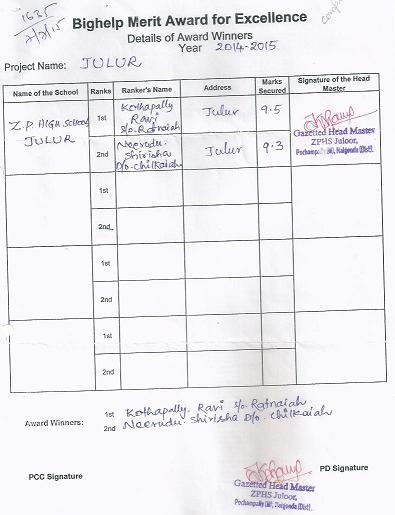 1635
7/7/15
Bighelp Merit Award for Excellence
Details of Award Winners
Year 2014-2015
Project Name: JULUR
Name of the School Ranks Ranker's Name Address Marks Secured Signature of the Head Master
Z.P. HIGH SCHOOL JULUR
1st Kothapally Ravi S/o. Ratnaiah Julur 9.5
2nd Neerudu. Shirisha D/o. Chilkaiah Julur 9.3
Gazetted Head Master
ZPHS Juloor,
Pochampally (M), Nalgonda (Dist).
1st
2nd
1st
2nd
1st
2nd
Award Winners:
1st Kothapally. Ravi S/o. Ratnaiah
2nd Neerudu. Shirisha D/o. Chilkaiah
PCC Signature
PD Signature
Gazetted Head Master
ZPHS Juloor,
Pochampally (M), Nalgonda (Dist).